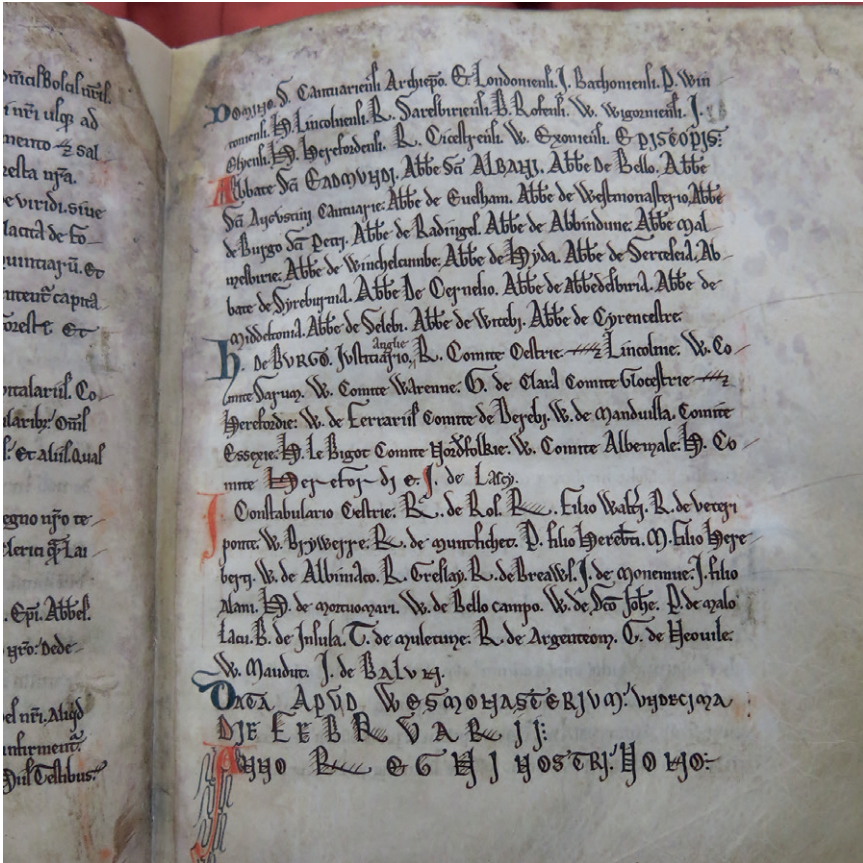 omcisBoscis nris.
i nri usq; ad
mento ⁊ sal
resta nra.
e viridi. siue
lacita de fo
et
capita
foreste. Et
pitalariis. Co
laribz: Omis
s: et aliis. Qual
egno nro te
lerici q Lai
. Epi. Abbes.
nro: Dede
el nri. Aliqd
infirment
Hiis Testibus:
Domino. S. Cantuariensi Archiepo. Et Londoniensi. J. Bathoniensi. P. Win
toniensi. H. Lincolniensi. R. Saresbiriensi. B. Rofensi. W. Wigorniensi. J.
Elyensi. H. Herefordensi. R. Cicestrensi. W. Exoniensi. EPISTOPIS:
Abbate Sci EADMUNDI. Abbe Sci ALBANI. Abbe De Bello. Abbe
Sci Augustini Cantuarie: Abbe de Euesham. Abbe de Westmonasterio, Abbe
de Burgo Sci Petri. Abbe de Radinges. Abbe de Abbindune: Abbe Mal
mesbirie: Abbe de Winchelcumbe: Abbe de Hyda. Abbe de Certeseia: Ab
bate de Syreburnia. Abbe De Cernelio. Abbe de Abbedesbiria. Abbe de
Middeltonia. Abbe de Selebi. Abbe de Witebi. Abbe de Cyrencestre:
H. De BURGO. Justiciario, Anglie R. Comite Cestrie ⁊ Lincolnie. W. Co
mite Sarum. W. Comite Warenne: G. de Clara Comite Gloecstrie ⁊
Herefordie: W. de Ferrariis Comite de Derebi. W. de Mandauilla. Comite
Essexie: H. Le Bigot Comite Nordfolkie. W. Comite Albemale: H. Co
mite Herefordie. J. de Lascy.
J. Constabulario Cestrie: R. de Ros. R. Filio Walti. R. de veteri
ponte: W. Brywerre: R. de muntfichet. P. filio Hereberti. M. Filio Here
berti. W. de Albiniaco. R. Gresley. R. de Breawls. J. de monemue: J. filio
Alani. H. de mortuomari. W. de Bello campo. W. de Sco Johe: P. de malo
Lacu. B. de Insula. T. de muletune: R. de Argenteom. G. de Neouile:
W. Maudut. J. de BALUN.
DATA APUD WESMONASTERIUM: UNDECIMA
DIE FEBRUARII:
ANNO REGNI NOSTRI: NONO: